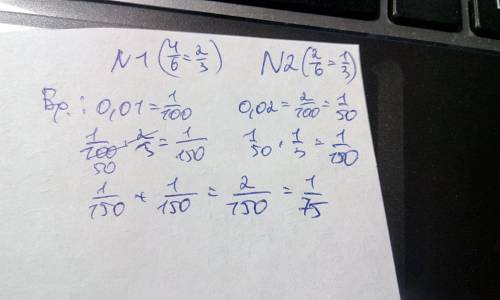 N1 (4/6 = 2/3) N2 (2/6 = 1/3)
Вр.: 0,01 = 1/100 0,02 = 2/100 = 1/50
1/100 · 2/3 = 1/150 1/50 · 1/3 = 1/150
50
1/150 + 1/150 = 2/150 = 1/75